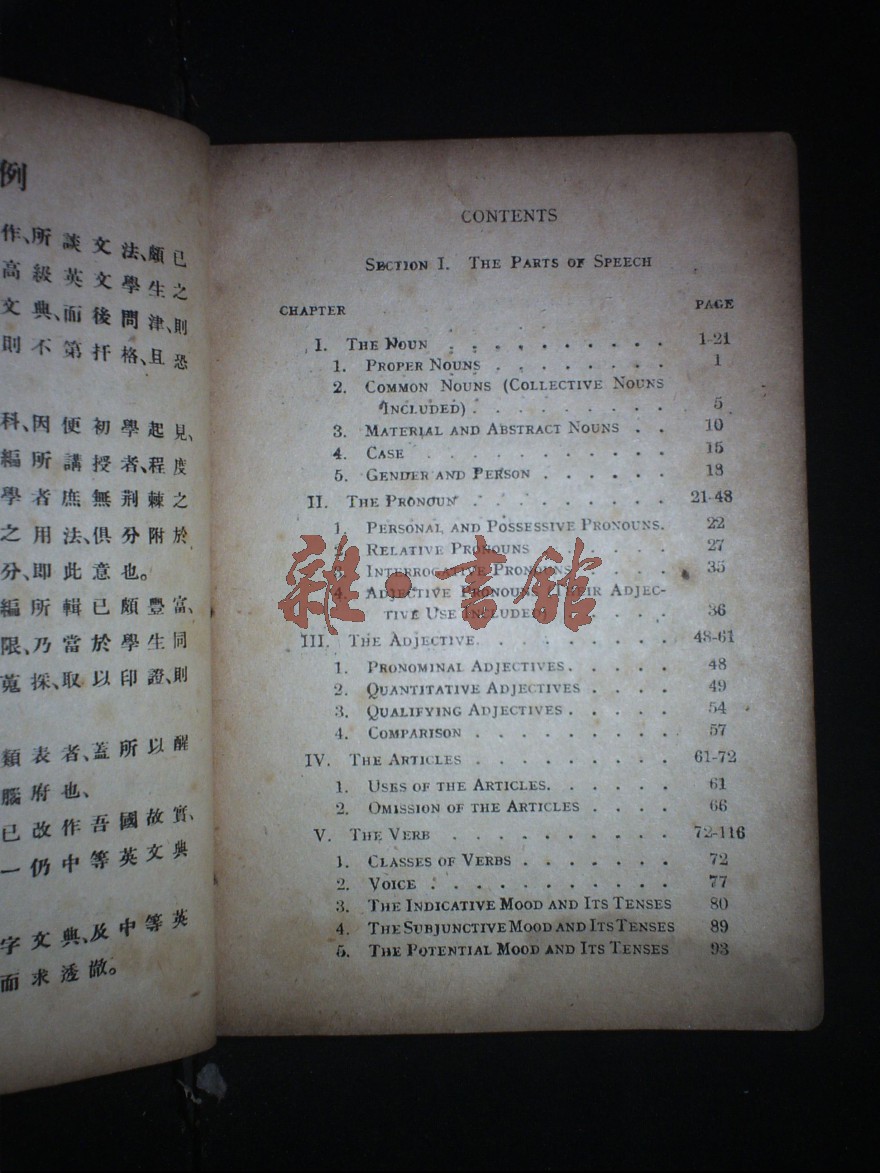 例
作、所談文法、頗已
高級英文學生之
文典、而後問津、則
則不第扞格、且恐
科、因便初學起見、
編所講授者、程度
學者庶無荆棘之
之用法、俱分附於
分、即此意也。
編所輯已頗豐富、
限、乃當於學生同
蒐採、取以印證、則
類表者、蓋所以醒
腦府也、
已改作吾國故實、
一仍中等英文典
字文典、及中等英
而求透澈。
CONTENTS
SECTION I. THE PARTS OF SPEECH
CHAPTER PAGE
I. THE NOUN . . . . . . . . . . 1-21
1. PROPER NOUNS . . . . . . . . 1
2. COMMON NOUNS (COLLECTIVE NOUNS
INCLUDED) . . . . . . . . . 5
3. MATERIAL AND ABSTRACT NOUNS . . 10
4. CASE . . . . . . . . . . . 15
5. GENDER AND PERSON . . . . . . 18
II. THE PRONOUN . . . . . . . . . 21-48
1. PERSONAL AND POSSESSIVE PRONOUNS. 22
2. RELATIVE PRONOUNS . . . . . . 27
3. INTERROGATIVE PRONOUNS . . . . 35
4. ADJECTIVE PRONOUNS (THEIR ADJEC-
TIVE USE INCLUDED) . . . . . 36
III. THE ADJECTIVE. . . . . . . . . 48-61
1. PRONOMINAL ADJECTIVES. . . . . 48
2. QUANTITATIVE ADJECTIVES . . . . 49
3. QUALIFYING ADJECTIVES . . . . . 54
4. COMPARISON . . . . . . . . . 57
IV. THE ARTICLES . . . . . . . . . 61-72
1. USES OF THE ARTICLES. . . . . . 61
2. OMISSION OF THE ARTICLES . . . . 66
V. THE VERB . . . . . . . . . . 72-116
1. CLASSES OF VERBS . . . . . . . 72
2. VOICE . . . . . . . . . . . 77
3. THE INDICATIVE MOOD AND ITS TENSES 80
4. THE SUBJUNCTIVE MOOD AND ITS TENSES 89
5. THE POTENTIAL MOOD AND ITS TENSES 93
雜·書館